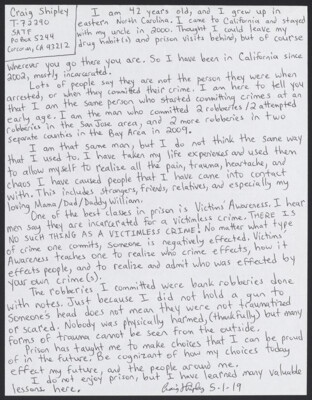 Craig Shipley
T-73240
SATF
PO Box 5244
Corcoran, CA 93212
I am 42 years old, and I grew up in
eastern North Carolina. I came to California and stayed
with my uncle in 2000. Thought I could leave my
drug habit(s) and prison visits behind, but of course
wherever you go there you are. So I have been in California since
2002, mostly incarcerated.
Lots of people say they are not the person they were when
arrested, or when they committed their crime. I am here to tell you
that I am the same person who started committing crimes at an
early age. I am the man who committed 2 robberies/2 attempted
robberies in the San Jose area, and 2 more robberies in two
separate counties in the Bay Area in 2009.
I am that same man, but I do not think the same way
that I used to. I have taken my life experiences and used them
to allow myself to realize all the pain, trauma, heartache, and
chaos I have caused people that I have came into contact
with. This includes strangers, friends, relatives, and especially my
loving Mama/Dad/Daddy William.
One of the best classes in prison is Victims' Awareness. I hear
men say they are incarcerated for a victimless crime. THERE IS
NO SUCH THING AS A VICTIMLESS CRIME! No matter what type
of crime one commits, someone is negatively effected. Victims
Awareness teaches one to realize who crime effects, how it
effects people, and to realize and admit who was effected by
your own crime(s).
The robberies I committed were bank robberies done
with notes. Just because I did not hold a gun to
someone's head does not mean they were not traumatized
or scared. Nobody was physically harmed, (thankfully) but many
forms of trauma cannot be seen from the outside.
Prison has taught me to make choices that I can be proud
of in the future. Be cognizant of how my choices today
effect my future, and the people around me.
I do not enjoy prison, but I have learned many valuable
lessons here.
Craig Shipley 5-1-19